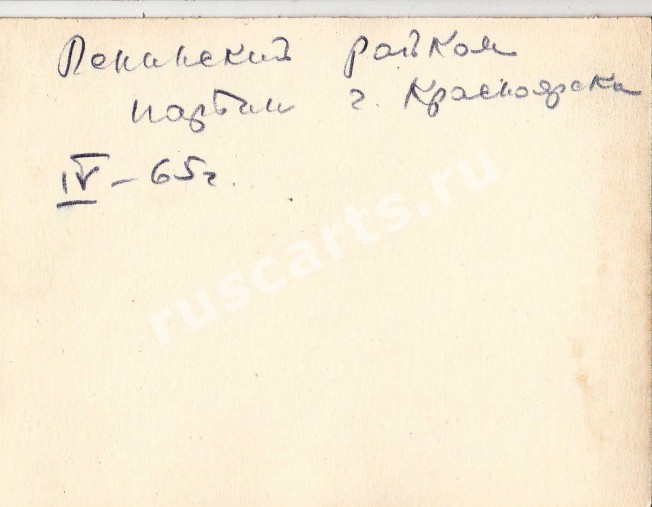 Ленинский райком
партии г. Красноярска
IV – 65г.
ruscarts.ru